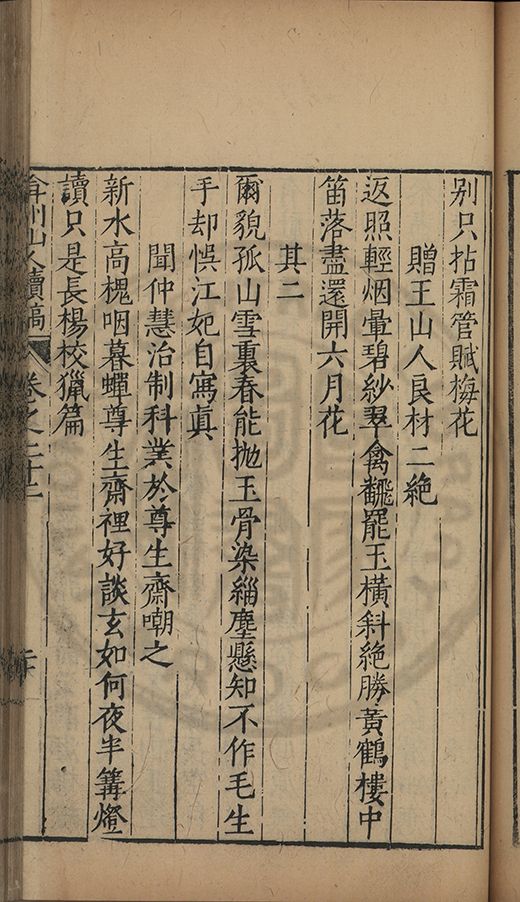 别只拈霜管賦梅花
贈王山人良材二絶
返照輕烟暈碧紗翠禽飜罷玉橫斜絶勝黃鶴樓中
笛落盡還開六月花
其二
爾貌孤山雪裏春能拋玉骨染緇塵懸知不作毛生
手却悞江妃自寫眞
聞仲慧治制科業於尊生齋嘲之
新水高槐咽暮蟬尊生齋裡好談玄如何夜半篝燈
讀只是長楊校獵篇
弇州山人續稿 卷之二十二